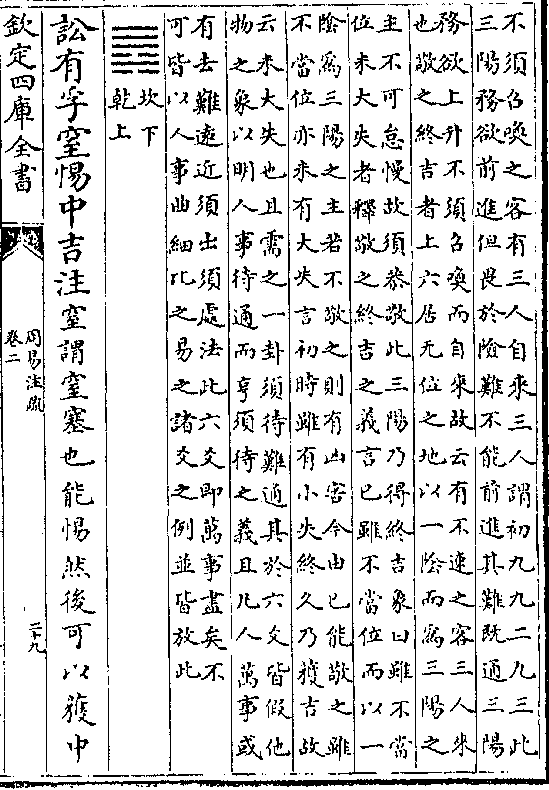 不須召喚之客有三人自來三人謂初九九二九三此
三陽務欲前進但畏於險難不能前進其難既通三陽
務欲上升不須召喚而自來故云有不速之客三人來
也敬之終吉者上六居无位之地以一陰而為三陽之
主不可怠慢故須恭敬此三陽乃得終吉象曰雖不當
位未大失者釋敬之終吉之義言已雖不當位而以一
陰為三陽之主若不敬之則有凶害今由已能敬之雖
不當位亦未有大失言初時雖有小失終久乃獲吉故
云未大失也且需之一卦須待難通其於六爻皆假他
物之象以明人事待通而亨須待之義且凡人萬事或
有去難遠近須出須處法此六爻即萬事盡矣不
可皆以人事曲細比之易之諸爻之例並皆放此
坎下
乾上
訟有孚窒惕中吉注窒謂窒塞也能惕然後可以獲中
欽定四庫全書
周易注疏
卷二
二十九